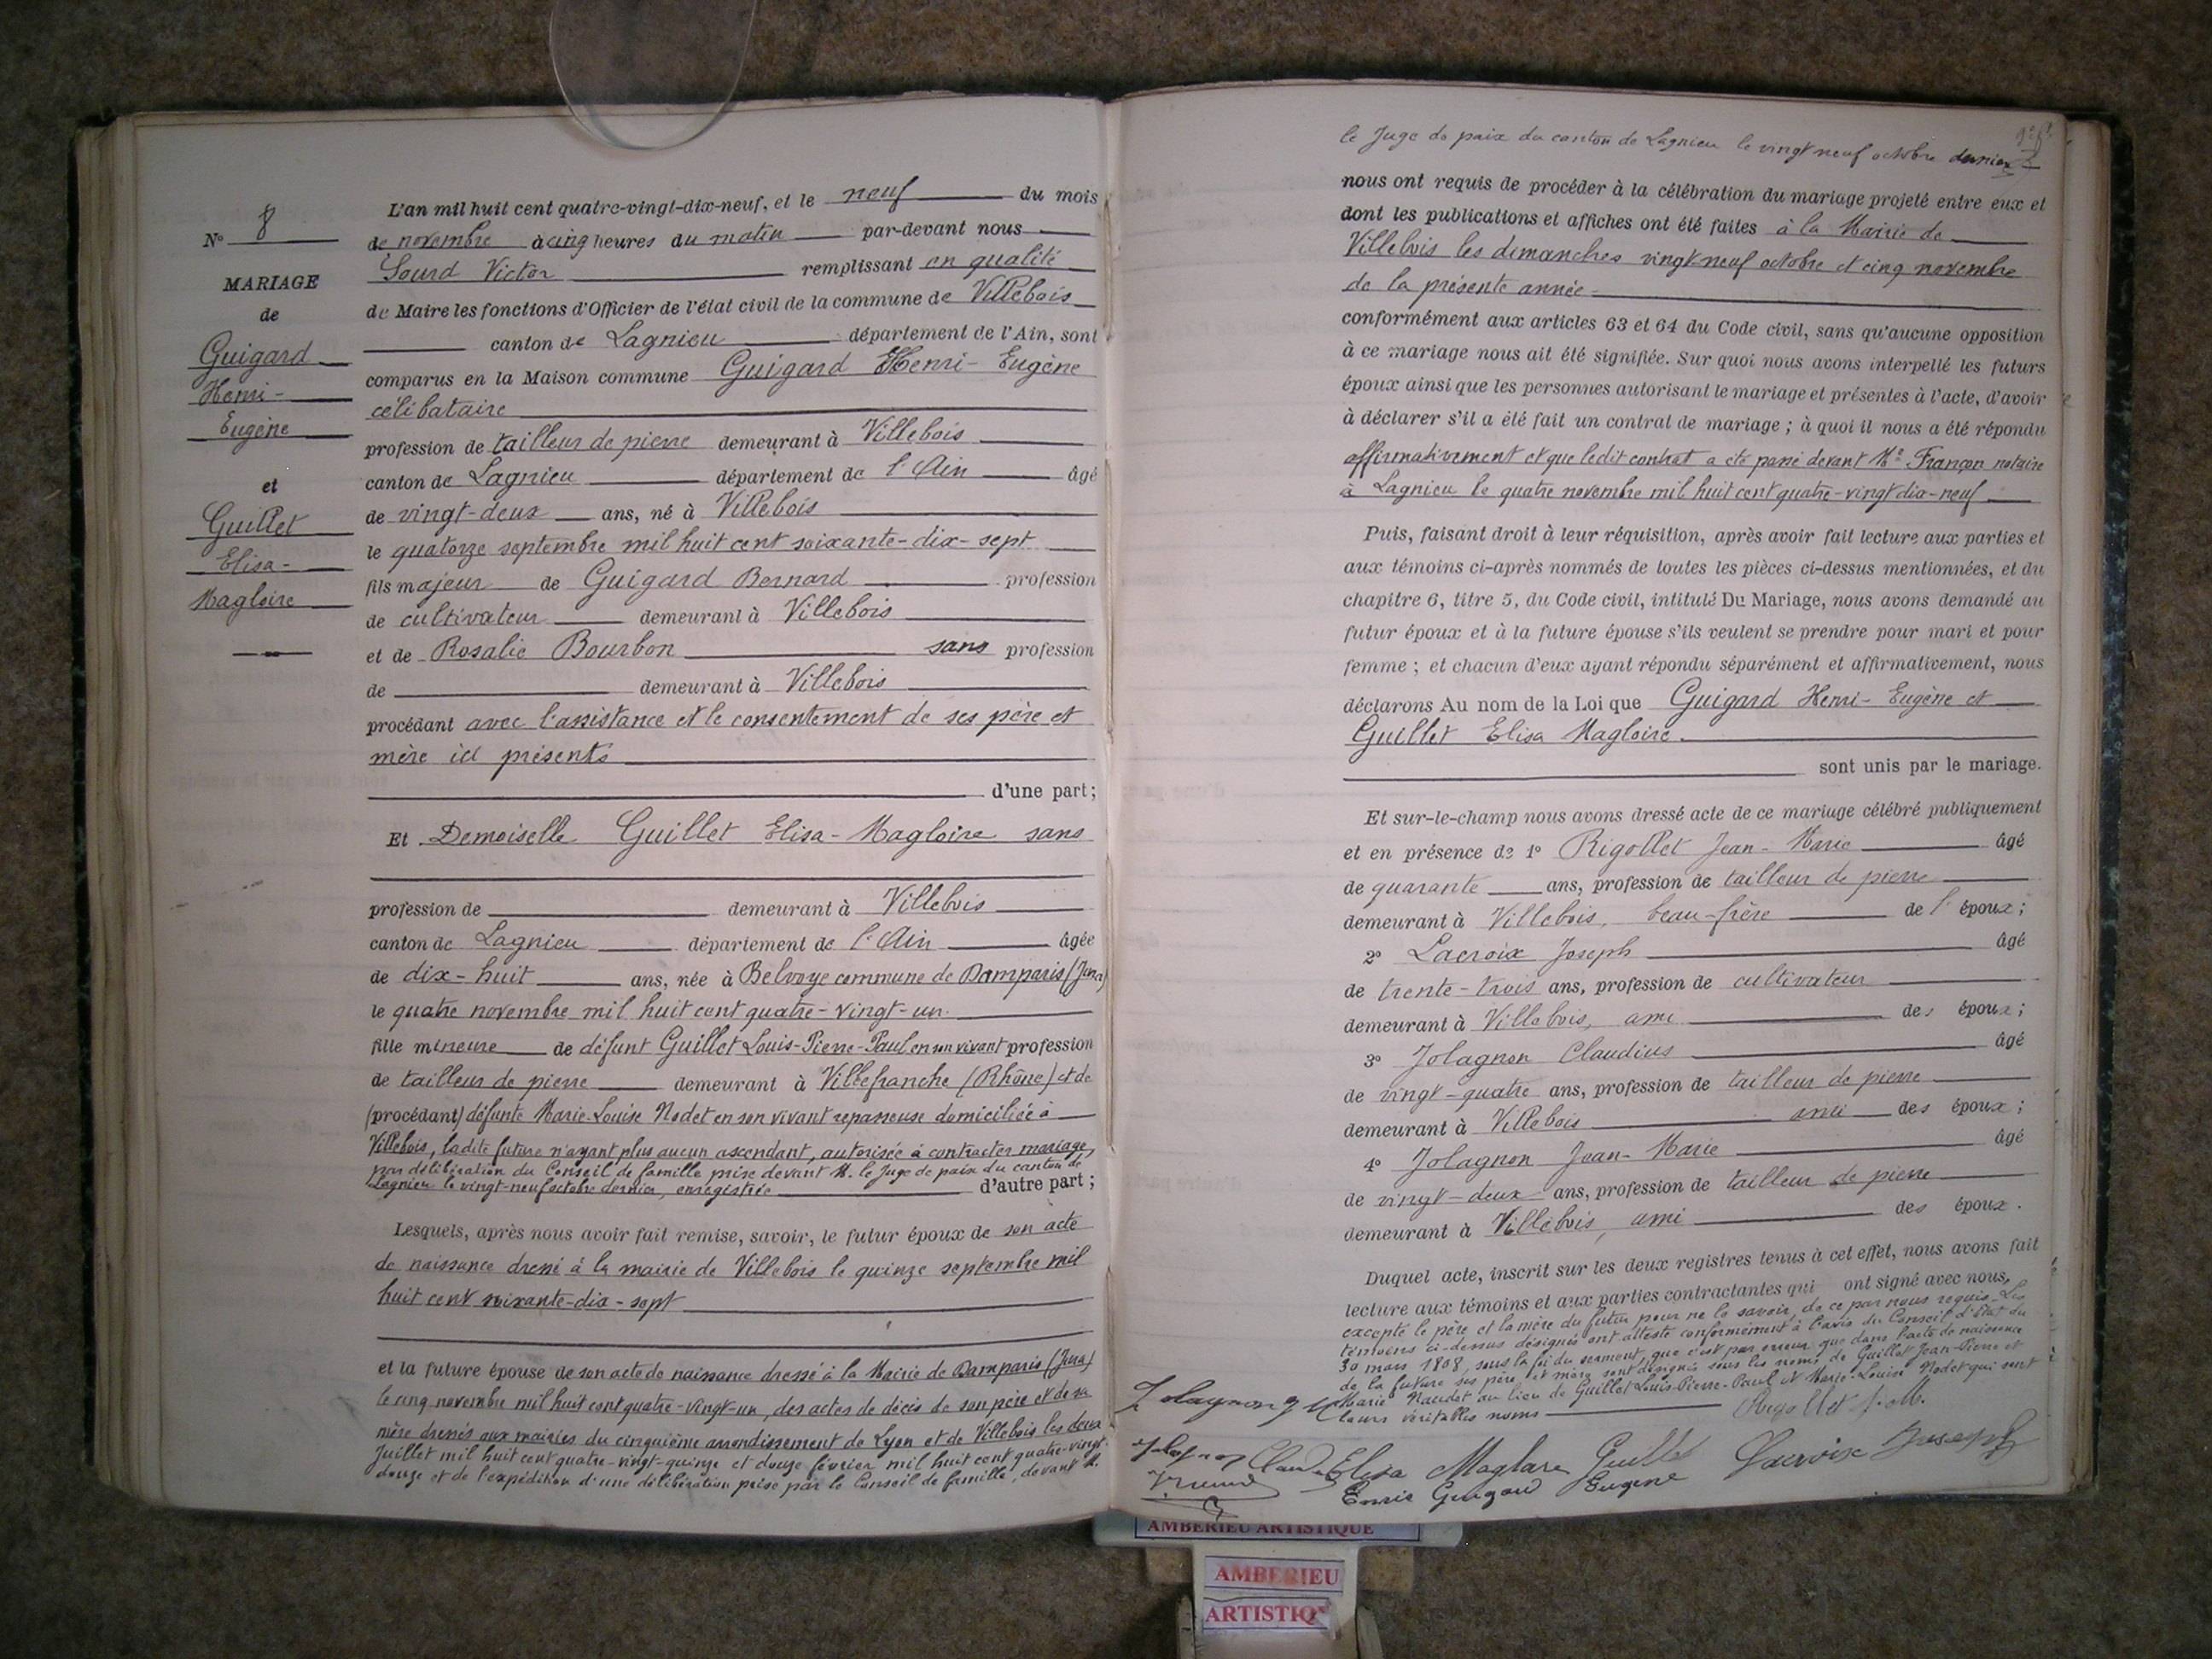 N° 8
MARIAGE
de
Guigard
Henri-
Eugène
et
Guillet
Elisa-
Magloire
L'an mil huit cent quatre-vingt-dix-neuf, et le neuf du mois
de novembre à cinq heures du matin par-devant nous
Sourd Victor remplissant en qualité
de Maire les fonctions d'Officier de l'état civil de la commune de Villebois
canton de Lagnieu département de l'Ain, sont
comparus en la Maison commune Guigard Henri-Eugène
célibataire
profession de tailleur de pierre demeurant à Villebois
canton de Lagnieu département de l'Ain âgé
de vingt-deux ans, né à Villebois
le quatorze septembre mil huit cent soixante-dix-sept
fils majeur de Guigard Bernard profession
de cultivateur demeurant à Villebois
et de Rosalie Bourbon sans profession
de demeurant à Villebois
procédant avec l'assistance et le consentement de ses père et
mère ici présents
d'une part;
Et Demoiselle Guillet Elisa-Magloire sans
profession de demeurant à Villebois
canton de Lagnieu département de l'Ain âgée
de dix-huit ans, née à Belvoye commune de Damparis (Jura)
le quatre novembre mil huit cent quatre-vingt-un
fille mineure de défunt Guillet Louis-Pierre-Paul en son vivant profession
de tailleur de pierre demeurant à Villefranche (Rhône) et de
(procédant) défunte Marie-Louise Nodet en son vivant repasseuse domiciliée à
Villebois, ladite future n'ayant plus aucun ascendant, autorisée à contracter mariage
par délibération du Conseil de famille prise devant M. le Juge de paix du canton de
Lagnieu le vingt-neuf octobre dernier, enregistrée d'autre part;
Lesquels, après nous avoir fait remise, savoir, le futur époux de son acte
de naissance dressé à la mairie de Villebois le quinze septembre mil
huit cent soixante-dix-sept
et la future épouse de son acte de naissance dressé à la Mairie de Damparis (Jura)
le cinq novembre mil huit cent quatre-vingt-un, des actes de décès de son père et de sa
mère dressés aux mairies du cinquième arrondissement de Lyon et de Villebois les deux
Juillet mil huit cent quatre-vingt-quinze et douze février mil huit cent quatre-vingt-
douze et de l'expédition d'une délibération prise par le Conseil de famille, devant M.
le Juge de paix du canton de Lagnieu le vingt neuf octobre dernier
nous ont requis de procéder à la célébration du mariage projeté entre eux et
dont les publications et affiches ont été faites à la Mairie de
Villebois les dimanches vingt-neuf octobre et cinq novembre
de la présente année
conformément aux articles 63 et 64 du Code civil, sans qu'aucune opposition
à ce mariage nous ait été signifiée. Sur quoi nous avons interpellé les futurs
époux ainsi que les personnes autorisant le mariage et présentes à l'acte, d'avoir
à déclarer s'il a été fait un contrat de mariage; à quoi il nous a été répondu
affirmativement et que ledit contrat a été passé devant Me Françon notaire
à Lagnieu le quatre novembre mil huit cent quatre-vingt dix-neuf
Puis, faisant droit à leur réquisition, après avoir fait lecture aux parties et
aux témoins ci-après nommés de toutes les pièces ci-dessus mentionnées, et du
chapitre 6, titre 5, du Code civil, intitulé Du Mariage, nous avons demandé au
futur époux et à la future épouse s'ils veulent se prendre pour mari et pour
femme; et chacun d'eux ayant répondu séparément et affirmativement, nous
déclarons Au nom de la Loi que Guigard Henri-Eugène et
Guillet Elisa Magloire.
sont unis par le mariage.
Et sur-le-champ nous avons dressé acte de ce mariage célébré publiquement
et en présence de 1° Rigollet Jean-Marie âgé
de quarante ans, profession de tailleur de pierre
demeurant à Villebois, beau-frère de l'époux;
2° Lacroix Joseph âgé
de trente-trois ans, profession de cultivateur
demeurant à Villebois, ami des époux;
3° Jolagnon Claudius âgé
de vingt-quatre ans, profession de tailleur de pierre
demeurant à Villebois ami des époux;
4° Jolagnon Jean-Marie âgé
de vingt-deux ans, profession de tailleur de pierre
demeurant à Villebois, ami des époux.
Duquel acte, inscrit sur les deux registres tenus à cet effet, nous avons fait
lecture aux témoins et aux parties contractantes qui ont signé avec nous,
excepté le père et la mère du futur pour ne le savoir, de ce par nous requis. Les
témoins ci-dessus désignés ont attesté conformément à l'avis du Conseil d'Etat du
30 mars 1808, sous la foi du serment, que c'est par erreur que dans l'acte de naissance
de la future ses père et mère sont désignés sous les noms de Guillet Jean-Pierre et
Marie Naudet au lieu de Guillet Louis-Pierre-Paul et Marie-Louise Nodet qui sont
leurs véritables noms
Jolagnon J M
Rigollet J.M.
Jolagnon Claud
Elisa Maglare Guillet
Lacroix Joseph
Enrie Guigard Eugene
AMBERIEU ARTISTIQUE
AMBERIEU
ARTISTIQ